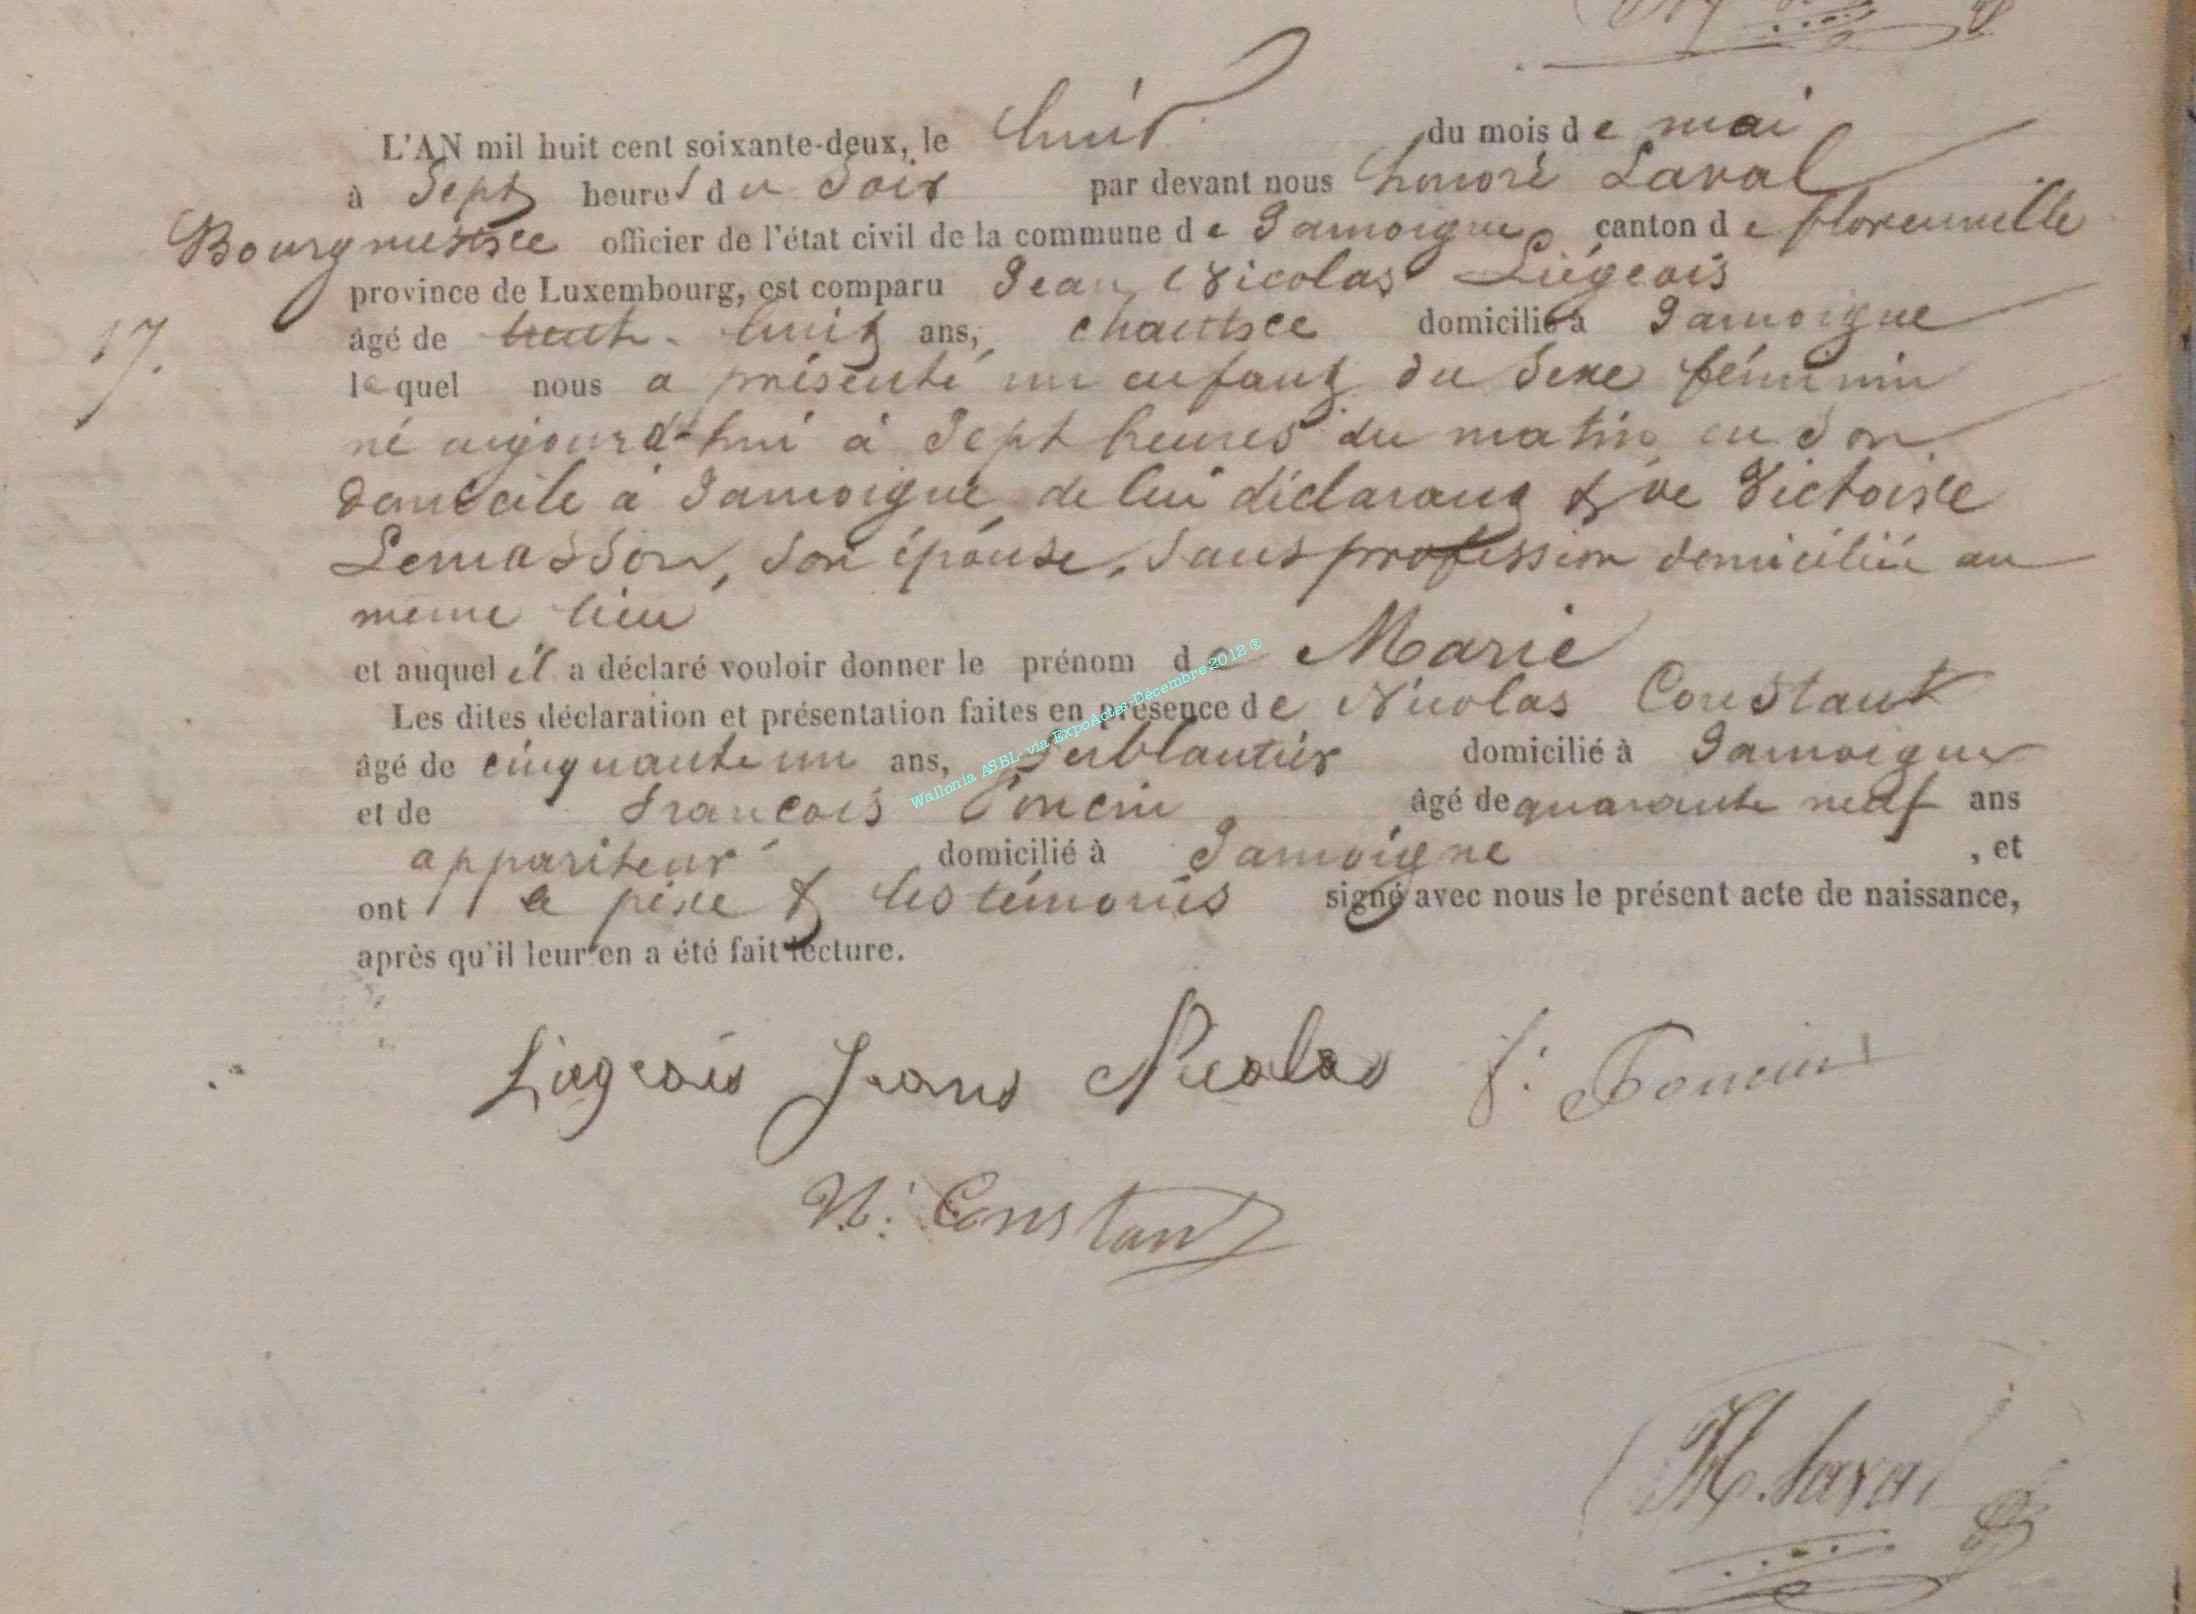 L'AN mil huit cent soixante-deux, le huit du mois de mai
à Sept heures du Soir par devant nous honoré Laval
Bourgmestre officier de l'état civil de la commune de Jamoigne canton de florenville
province de Luxembourg, est comparu Jean Nicolas Liégeois
17. âgé de trente-huit ans, chantre domicilié à Jamoigne
lequel nous a présenté un enfant du Sexe féminin
né aujourd'hui à Sept heures du matin en Son
domicile à Jamoigne de lui déclarant & de Victoire
Lemasson, Son épouse, Sans profession domiciliée au
meme lieu
et auquel il a déclaré vouloir donner le prénom de Marie
Les dites déclaration et présentation faites en présence de Nicolas Constant
âgé de cinquante un ans, ferblantier domicilié à Jamoigne
et de francois Poncin âgé de quarante neuf ans
appariteur domicilié à Jamoigne , et
ont le père & les témoins signé avec nous le présent acte de naissance,
après qu'il leur en a été fait lecture.
Liegeois Jeans Nicolas f: Poncin
N: Constant
H. Laval
Wallonia ASBL - via ExpoActes Décembre 2012 ®